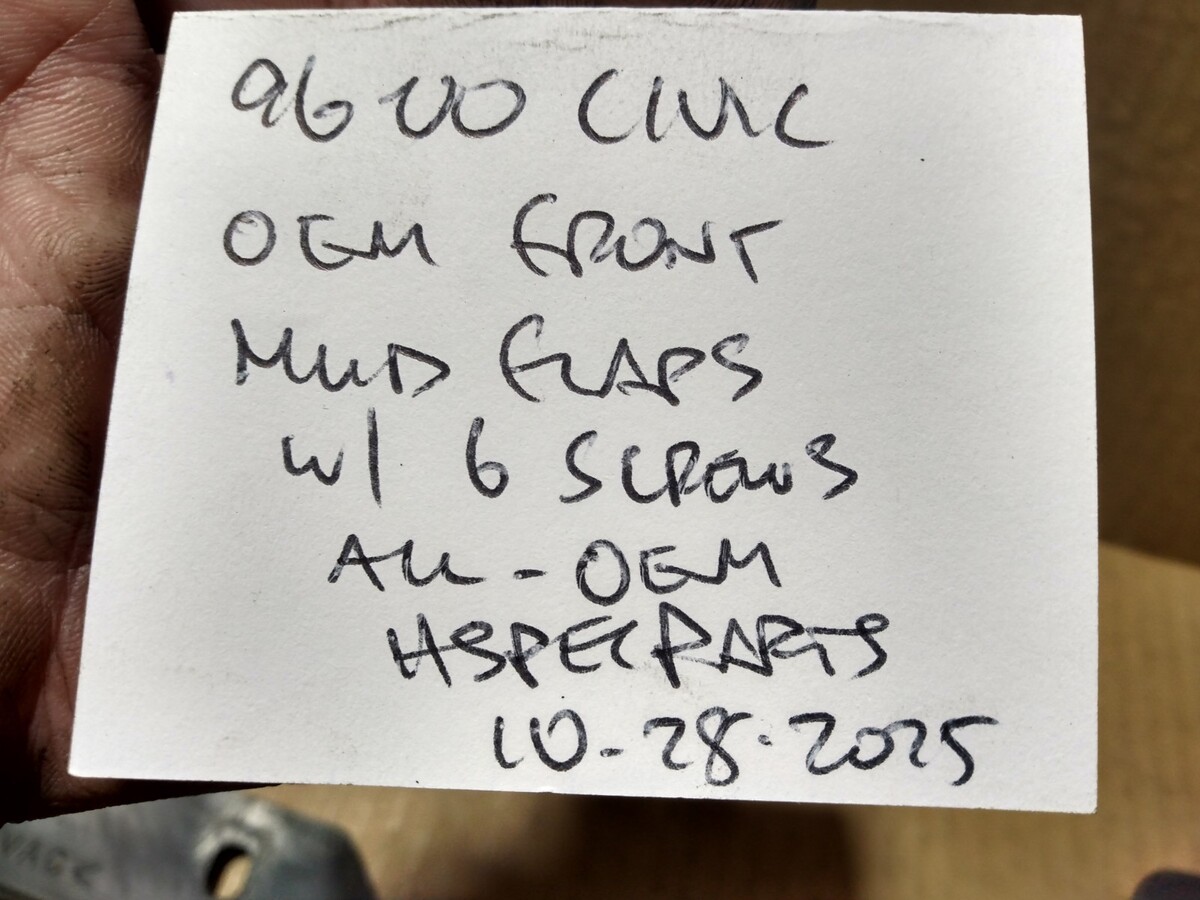 96 00 CIVIC
OEM FRONT
MUD FLAPS
W/ 6 SCREWS
ALL - OEM
HSPECPARTS
10-28-2025